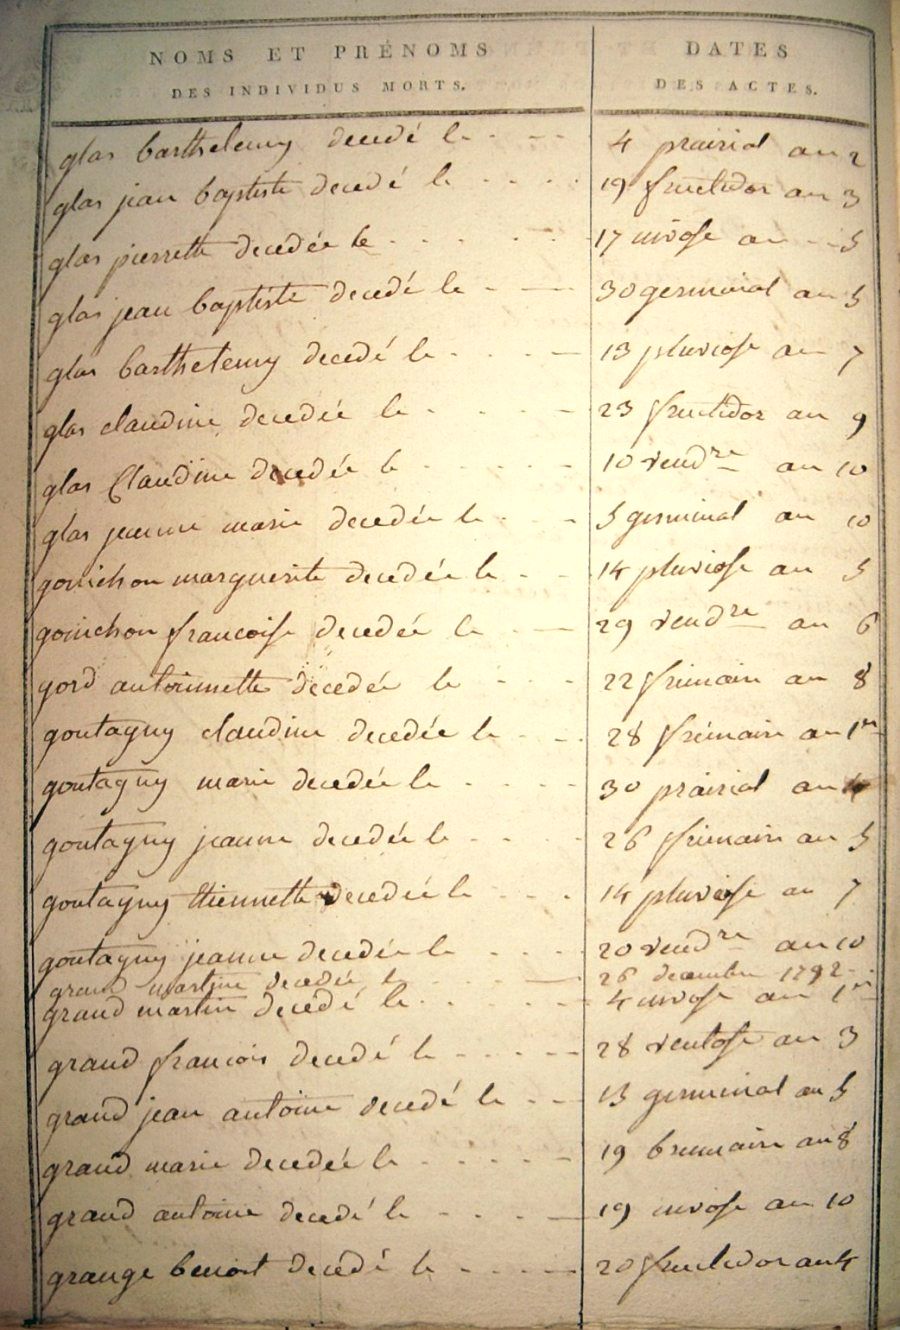 NOMS ET PRÉNOMS DATES
DES INDIVIDUS MORTS. DES ACTES.
glas barthelemy decedé le 4 prairial an 2
glas jean baptiste decedé le 19 fructidor an 3
glas pierrette decedée le 17 nivose an 5
glas jean baptiste decedé le 30 germinal an 5
glas barthelemy decedé le 13 pluviose an 7
glas claudine decedée le 23 fructidor an 9
glas Claudine decedée le 10 vendre an 10
glas jeanne marie decedée le 5 germinal an 10
gonichon marguerite decedée le 14 pluviose an 5
gonichon francoise decedée le 29 vendre an 6
gord antoinnette decedée le 22 frimaire an 8
goutagny claudine decedée le 28 frimaire an 1er
goutagny marie decedée le 30 prairial an 4
goutagny jeanne decedée le 26 frimaire an 5
goutagny thiennette decedée le 14 pluviose an 7
goutagny jeanne decedée le 20 vendre an 10
grand martine decedée le 26 decembre 1792
grand martin decedé le 4 nivose an 1er
grand francois decedé le 28 ventose an 3
grand jean antoine decedé le 13 germinal an 5
grand marie decedée le 19 brumaire an 8
grand antoine decedé le 19 nivose an 10
grange benoit decedé le 20 fructidor an 4